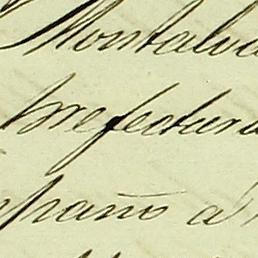 Montalva
prefectura
paño a